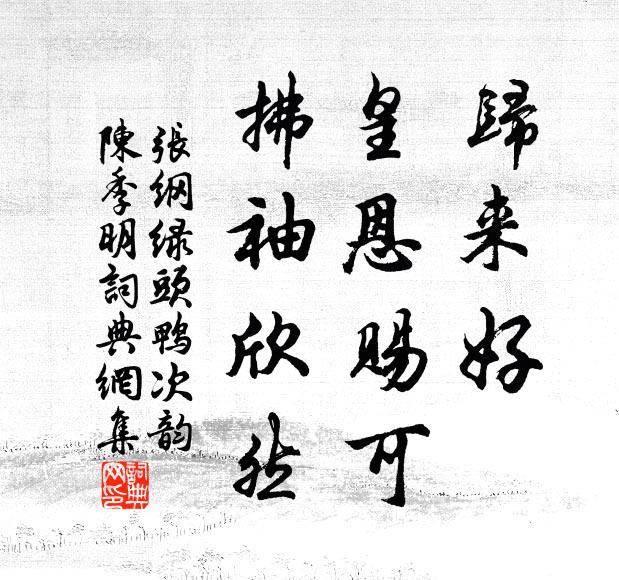 歸来好
皇恩賜可
拂袖欣然
張綱綠頭鴨次韵
陳季明詞典網集
詞典网印